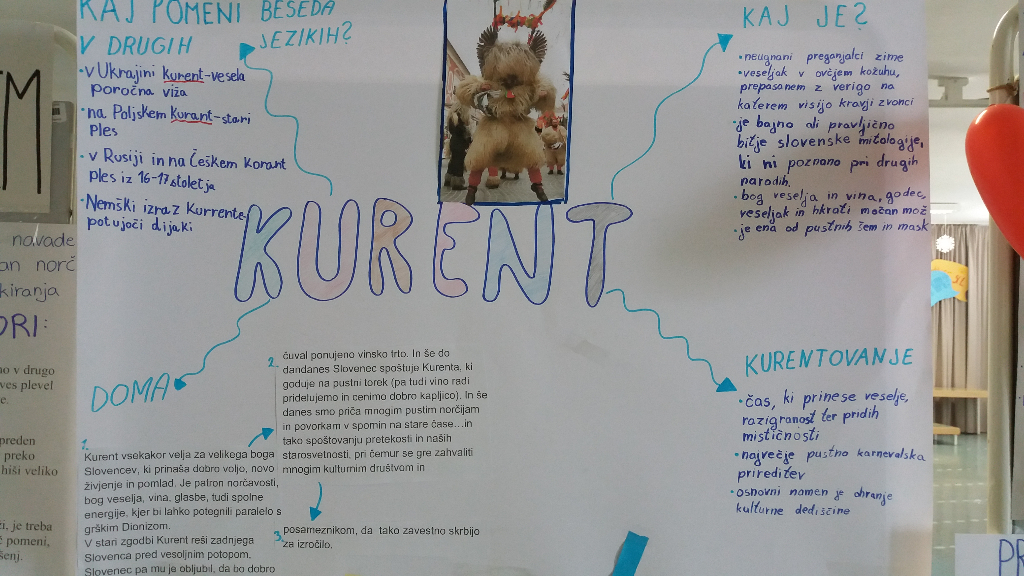 KAJ POMENI BESEDA
V DRUGIH JEZIKIH?
• v Ukrajini Kurent-vesela
poročna viža
• na Poljskem Kurant-stari
Ples
• v Rusiji in na Češkem Korant
ples iz 16-17 stoletja
• Nemški izraz Kurrente
potujoči dijaki
KAJ JE?
• neugnani preganjalci zime
• veseljak v ovčjem kožuhu,
prepasanem z verigo na
katerem visijo kravji zvonci
• je bajno ali pravljično
bitje slovenske mitologije,
ki ni poznano pri drugih
narodih.
• bog veselja in vina, godec,
veseljak in hkrati močan mož
• je ena od pustnih šem in mask
KURENT
DOMA
1.
Kurent vsekakor velja za velikega boga
Slovencev, ki prinaša dobro voljo, novo
življenje in pomlad. Je patron norčavosti,
bog veselja, vina, glasbe, tudi spolne
energije, kjer bi lahko potegnili paralelo s
grškim Dionizom.
V stari zgodbi Kurent reši zadnjega
Slovenca pred vesoljnim potopom.
Slovenec pa mu je obljubil, da bo dobro
2.
čuval ponujeno vinsko trto. In še do
dandanes Slovenec spoštuje Kurenta, ki
goduje na pustni torek (pa tudi vino radi
pridelujemo in cenimo dobro kapljico). In še
danes smo priča mnogim pustim norčijam
in povorkam v spomin na stare čase...in
tako spoštovanju pretekosti in naših
starosvetnosti, pri čemur se gre zahvaliti
mnogim kulturnim društvom in
3.
posameznikom, da tako zavestno skrbijo
za izročilo.
KURENTOVANJE
• čas, ki prinese veselje,
razigranost ter pridih
mističnosti
• največje pustno karnevalska
prireditev
• osnovni namen je ohranje
kulturne dediščine
M
navade
an norč
kiranja
ORI:
no v drugo
ves plevel
e.
preden
preko
hiši veliko
i, je treba
pomeni,
šenj.
PR